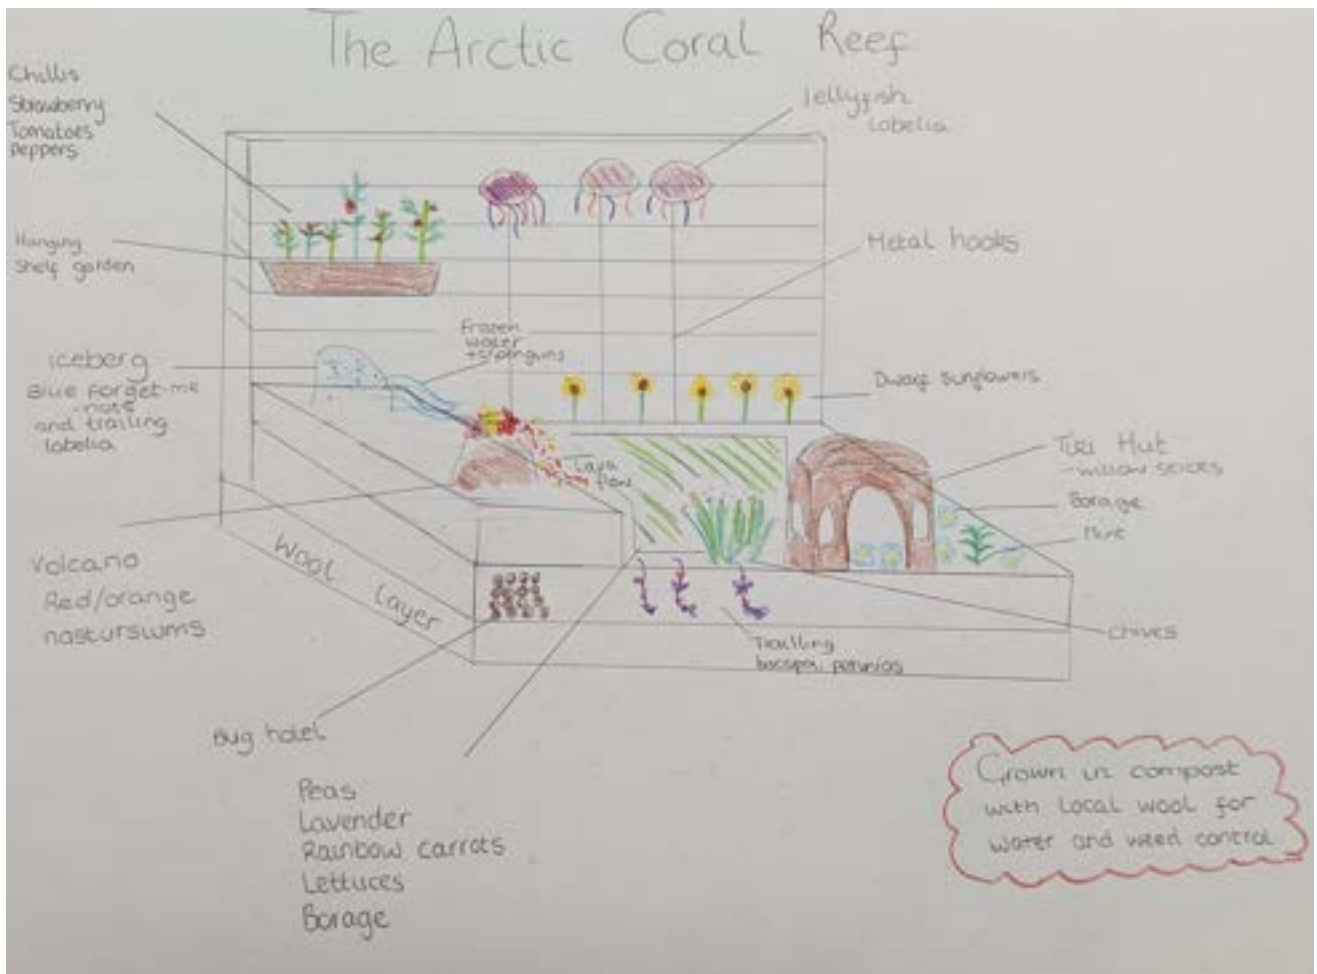 The Arctic Coral Reef
Chillis
Strawberry
Tomatoes
Peppers
Jellyfish
Labelia
Hanging
Shelf garden
Metal hooks
Frozen
water
iceberg
Blue forget-me
-nots
and trailing
labelia
Dwarf sunflowers
Lava
flow
Hut
-willow sticks
Borage
Mint
Volcano
Red/orange
nastursiums
Wool Layer
Chives
Trailing
petunias
Bug hotel
Peas
Lavender
Rainbow carrots
Lettuces
Borage
Grown in compost
with local wool for
water and weed control